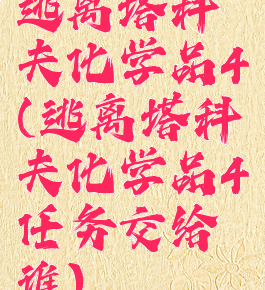 逃离塔科
夫化学品4
(逃离塔科
夫化学品4
任务交给
谁)